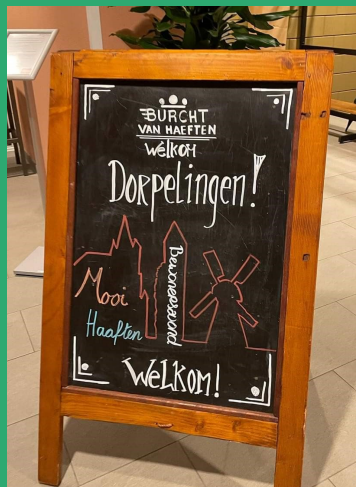 BURCHT
VAN HAEFTEN
WELKOM
Dorpelingen!
Mooi
Haaften
Bewonersavond
WELKOM!